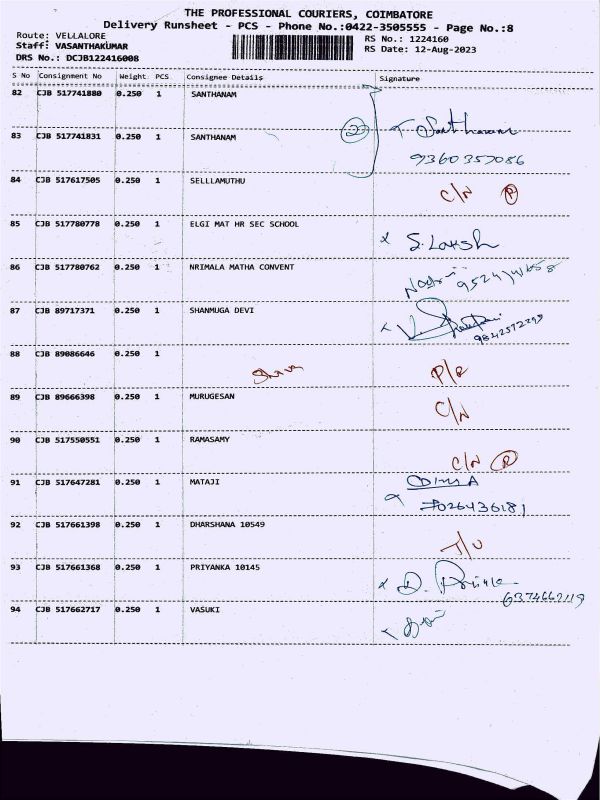 THE PROFESSIONAL COURIERS, COIMBATORE
Delivery Runsheet - PCS - Phone No.:0422-3505555 - Page No.:8
Route: VELLALORE RS No.: 1224160
Staff: VASANTHAKUMAR RS Date: 12-Aug-2023
DRS No.: DCJB122416008
S No Consignment No Weight PCS Consignee Details Signature
82 CJB 517741880 0.250 1 SANTHANAM
83 CJB 517741831 0.250 1 SANTHANAM Santhanam
9360357086
84 CJB 517617505 0.250 1 SELLLAMUTHU C/N R
85 CJB 517780778 0.250 1 ELGI MAT HR SEC SCHOOL S. Laksh
86 CJB 517780762 0.250 1 NRIMALA MATHA CONVENT
87 CJB 89717371 0.250 1 SHANMUGA DEVI
88 CJB 89086646 0.250 1 P/R
89 CJB 89666398 0.250 1 MURUGESAN C/N
90 CJB 517550551 0.250 1 RAMASAMY C/N R
91 CJB 517647281 0.250 1 MATAJI
7026436181
92 CJB 517661398 0.250 1 DHARSHANA 10549 T/U
93 CJB 517661368 0.250 1 PRIYANKA 10145
94 CJB 517662717 0.250 1 VASUKI